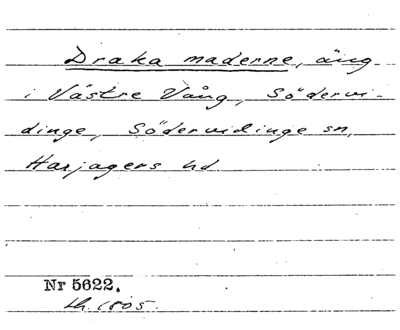 Draka maderne, äng
i Västre Vång, Södervi-
dinge, Södervidinge sn,
Harjagers hd
Nr 5622.
Lh. 1805.